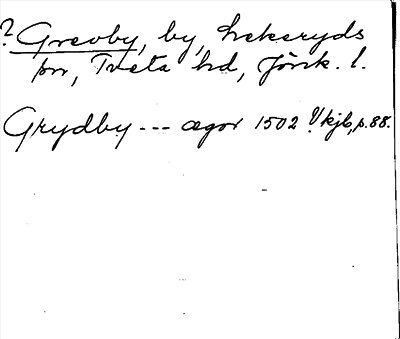 ? Grevby, by, Lekeryds
sn, Tveta hd, Jönk. l.
Grydby --- ægor 1502 Vkjb, p. 88.